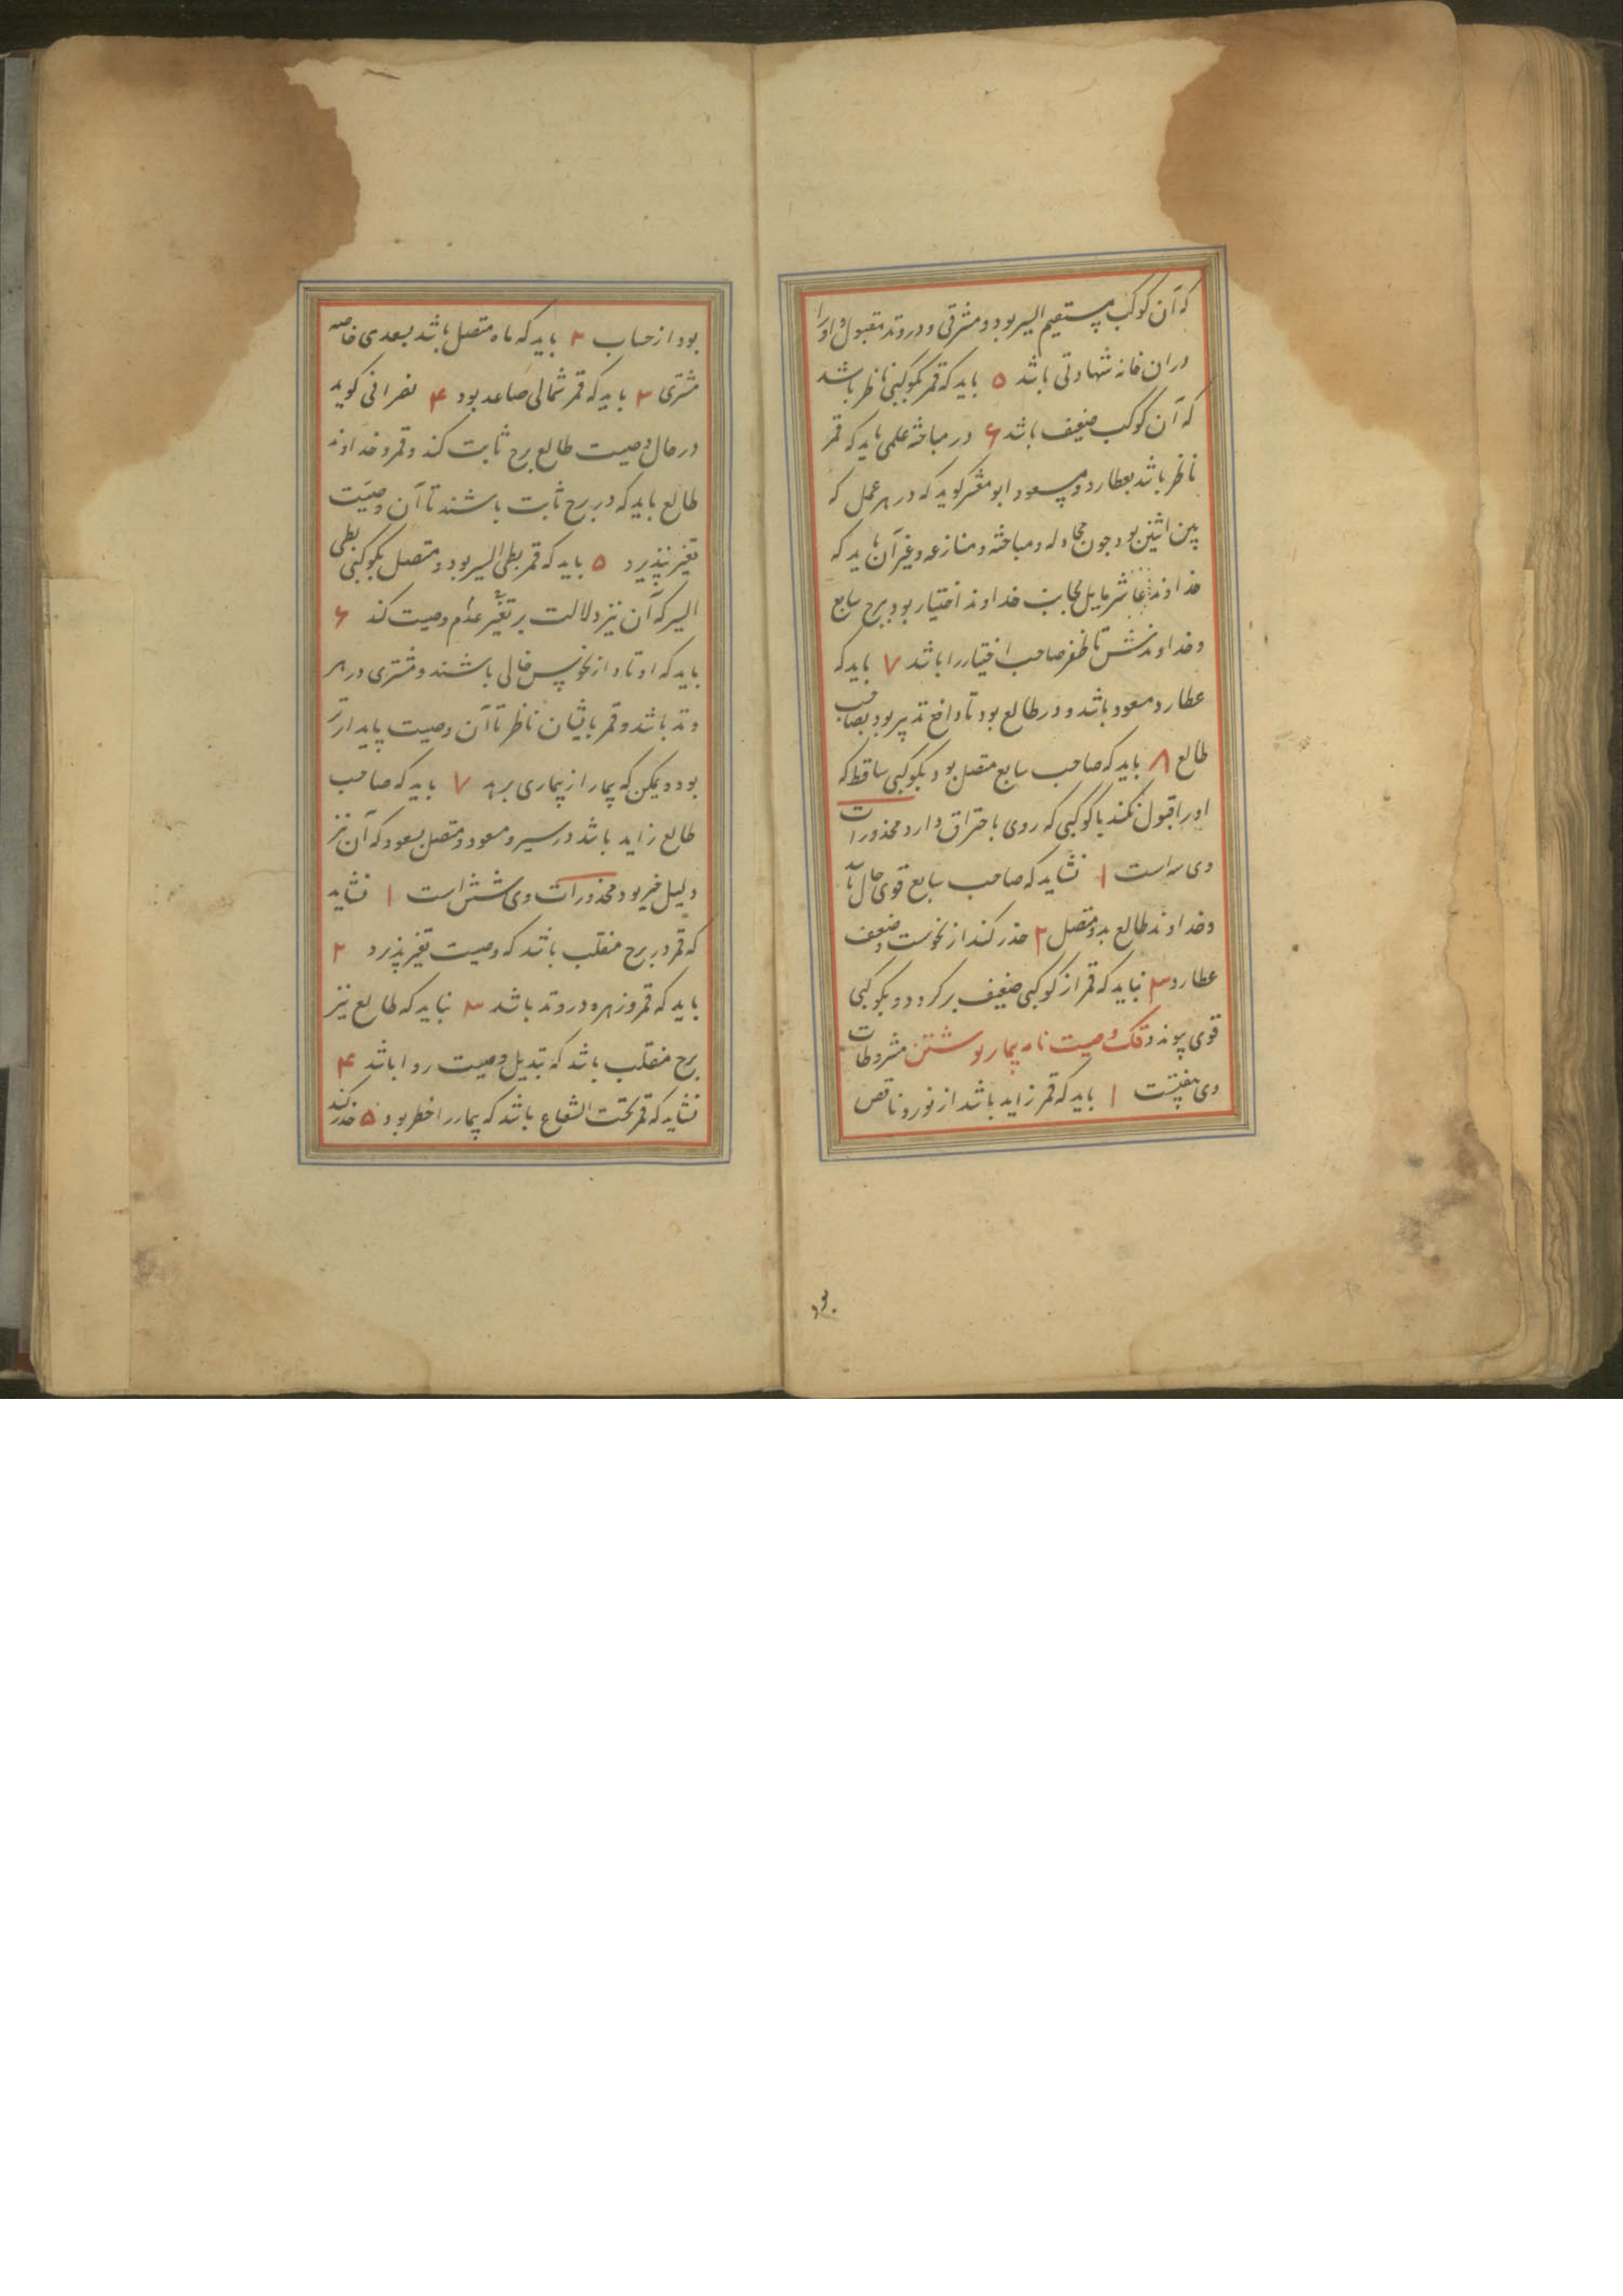 که آن کوکب مستقیم السیر بود و مشرقی و در وتد مقبول و اورا
دران خانه شهادتی باشد ۵ باید که قمر بکوکبی ناظر باشد
که آن کوکب ضعیف باشد ۶ در مباحثه علمی باید که قمر
ناظر باشد بعطارد و مسعود ابو معشر کوید که در هر عمل که
بین اثنین بود جون مجادله و مباحثه و منازعه و غیر آن باید که
خداوند عاشر مایل بجانب خداوند اختیار بود ببرج سابع
و خداوندش تا ظفر صاحب اختیار را باشد ۷ باید که
عطارد مسعود باشد و در طالع بود تا دافع تدبیر بود بصاحب
طالع ۸ باید که صاحب سابع متصل بود بکوکبی ساقط که
اورا قبول نکند یا کوکبی که روی باحتراق دارد محذورات
وی سه است ۱ نشاید که صاحب سابع قوی حال باشد
و خداوند طالع بدو متصل ۲ حذر کند از نحوست و ضعف
عطارد ۳ نباید که قمر از کوکبی ضعیف برکردد و بکوکبی
قوی پیوندد فک وصیت نامه بیمار نوشتن مشروطات
وی هفتست ۱ باید که قمر زاید باشد از نور و ناقص
بود از حساب ۲ باید که ماه متصل باشد بسعدی خاصه
مشتری ۳ باید که قمر شمالی صاعد بود ۴ نصرانی کوید
در حال وصیت طالع برج ثابت کند و قمر و خداوند
طالع باید که در برج ثابت باشند تا آن وصیت
تغیر نپذیرد ۵ باید که قمر بطی السیر بود و متصل بکوکبی بطی
السیر که آن نیز دلالت بر تغیر عدم وصیت کند ۶
باید که اوتاد از نحوس خالی باشند و مشتری در هر
وتد باشد و قمر بایشان ناظر تا آن وصیت پایدارتر
بود و یمکن که بیمار از بیماری برهد ۷ باید که صاحب
طالع زاید باشد در سیر و مسعود و متصل بسعود که آن نیز
دلیل خیر بود محذورات وی شش است ۱ نشاید
که قمر در برج منقلب باشد که وصیت تغیر پذیرد ۲
باید که قمر و زهره در وتد باشد ۳ نباید که طالع نیز
برج منقلب باشد که تبدیل وصیت روا باشد ۴
نشاید که قمر تحت الشعاع باشد که بیمار را خطر بود ۵ حذر کند